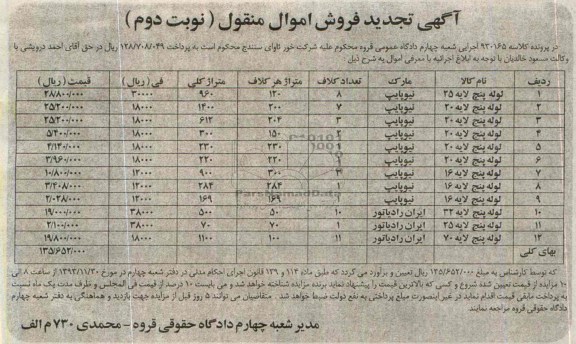 آگهی تجدید فروش اموال منقول ( نوبت دوم )
در پرونده کلاسه ۹۳۰۱۶۵ اجرایی شعبه چهارم دادگاه عمومی قروه محکوم علیه شرکت خور تاوای سنندج محکوم است به پرداخت ۱۲۸/۷۰۸/۰۴۹ ریال در حق آقای احمد درویشی با
وکالت مسعود خالدیان با توجه به ابلاغ اجرائیه با معرفی اموال به شرح ذیل :
ردیف نام کالا مارک تعداد کلاف متراژ هر کلاف متراژ کلی فی ( ریال ) قیمت ( ریال )
۱ لوله پنج لایه ۲۵ نیوپایپ ۸ ۱۲۰ ۹۶۰ ۳۰۰۰۰ ۲۸/۸۰۰/۰۰۰
۲ لوله پنج لایه ۲۰ نیوپایپ ۷ ۲۰۰ ۱۴۰۰ ۱۸۰۰۰ ۲۵/۲۰۰/۰۰۰
۳ لوله پنج لایه ۲۰ نیوپایپ ۳ ۲۰۴ ۶۱۲ ۱۸۰۰۰ ۲۵/۲۰۰/۰۰۰
۴ لوله پنج لایه ۲۰ نیوپایپ ۲ ۱۵۰ ۳۰۰ ۱۸۰۰۰ ۵/۴۰۰/۰۰۰
۵ لوله پنج لایه ۲۰ نیوپایپ ۱ ۲۳۰ ۲۳۰ ۱۸۰۰۰ ۴/۱۴۰/۰۰۰
۶ لوله پنج لایه ۲۰ نیوپایپ ۱ ۲۲۰ ۲۲۰ ۱۸۰۰۰ ۳/۹۶۰/۰۰۰
۷ لوله پنج لایه ۱۶ نیوپایپ ۳ ۳۰۰ ۹۰۰ ۱۲۰۰۰ ۱۰/۸۰۰/۰۰۰
۸ لوله پنج لایه ۱۶ نیوپایپ ۱ ۲۸۴ ۲۸۴ ۱۲۰۰۰ ۳/۴۰۸/۰۰۰
۹ لوله پنج لایه ۱۶ نیوپایپ ۱ ۱۶۹ ۱۶۹ ۱۲۰۰۰ ۲/۰۲۸/۰۰۰
۱۰ لوله پنج لایه ۳۲ ایران رادیاتور ۱۰ ۵۰ ۵۰۰ ۳۸۰۰۰ ۱۹/۰۰۰/۰۰۰
۱۱ لوله پنج لایه ۲۵ ایران رادیاتور ۱ ۷۰ ۷۰ ۳۸۰۰۰ ۲/۱۰۰/۰۰۰
۱۲ لوله پنج لایه ۲۰ ایران رادیاتور ۱۱ ۱۰۰ ۱۱۰۰ ۱۸۰۰۰ ۱۹/۸۰۰/۰۰۰
بهای کلی ۱۳۵/۶۵۲/۰۰۰
که توسط کارشناس به مبلغ ۱۳۵/۶۵۲/۰۰۰ ریال تعیین و برآورد می گردد که طبق ماده ۱۱۴ و ۱۲۹ قانون اجرای احکام مدنی در دفتر شعبه چهارم در مورخ ۱۳۹۳/۱۱/۳۰ از ساعت ۸ الی
۱۰ مزایده از قیمت تعیین شده شروع و کسی که بالاترین قیمت را پیشنهاد نماید برنده مزایده شناخته خواهد شد و می بایست ۱۰ درصد از قیمت فی المجلس و ظرف مدت یک ماه نسبت
به پرداخت مابقی قیمت اقدام نماید در غیر اینصورت مبلغ پرداختی به نفع دولت ضبط خواهد شد . متقاضیان می توانند ۵ روز قبل از مزایده جهت بازدید و هماهنگی به دفتر شعبه چهارم
دادگاه حقوقی قروه مراجعه نمایند.
مدیر شعبه چهارم دادگاه حقوقی قروه - محمدی ۷۳۰ م الف